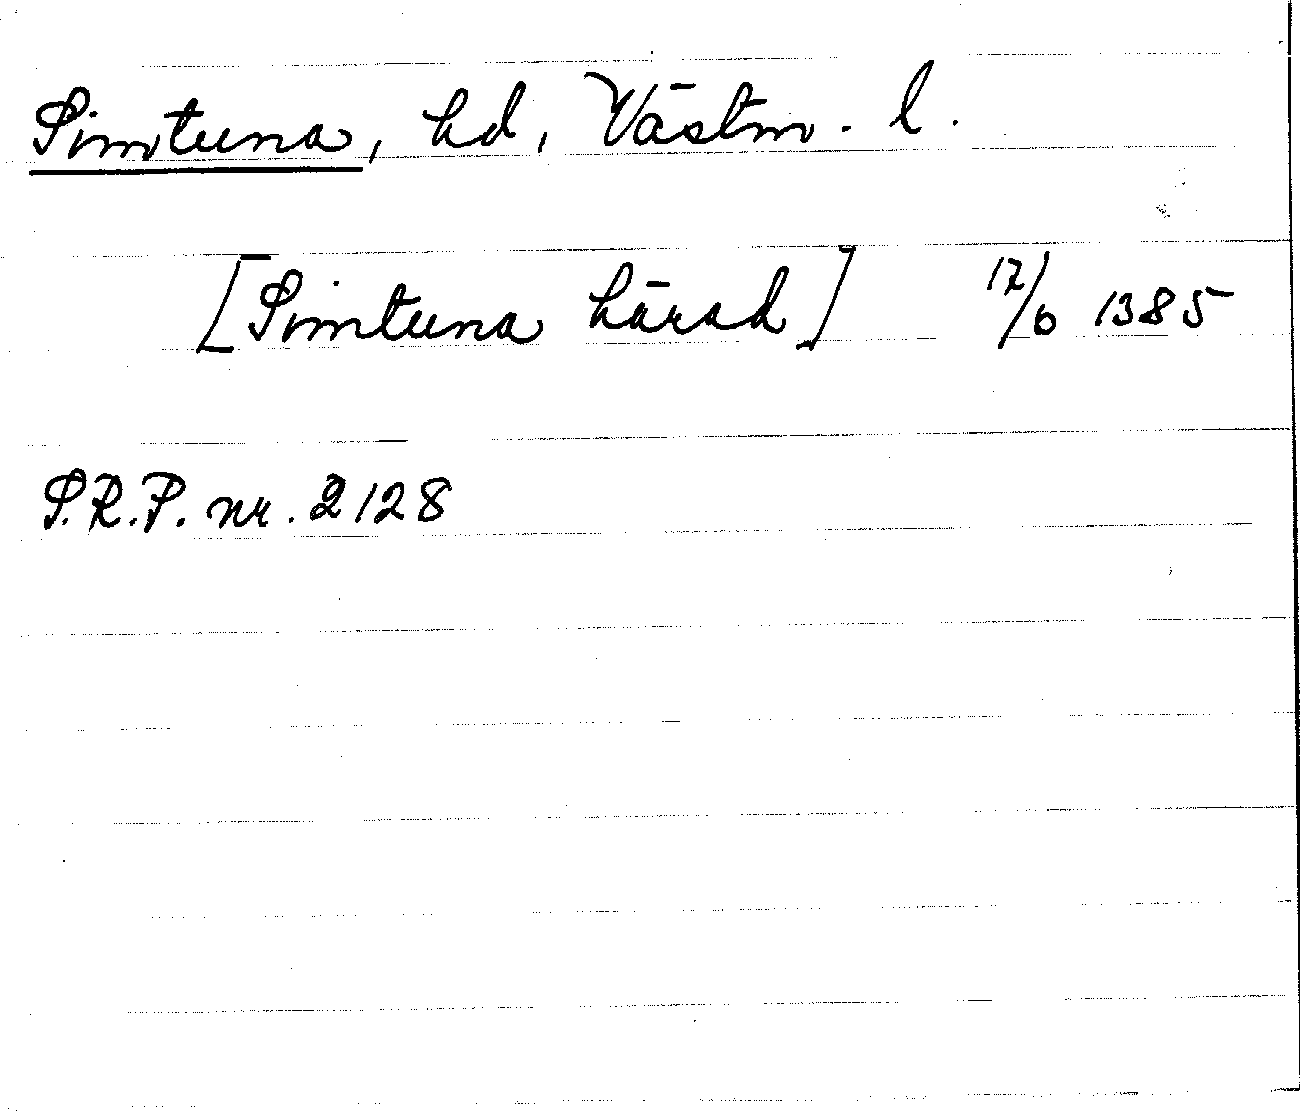 Simtuna, hd, Västm. l.
[Simtuna härad] 17/6 1385
S.R.P. nr. 2128